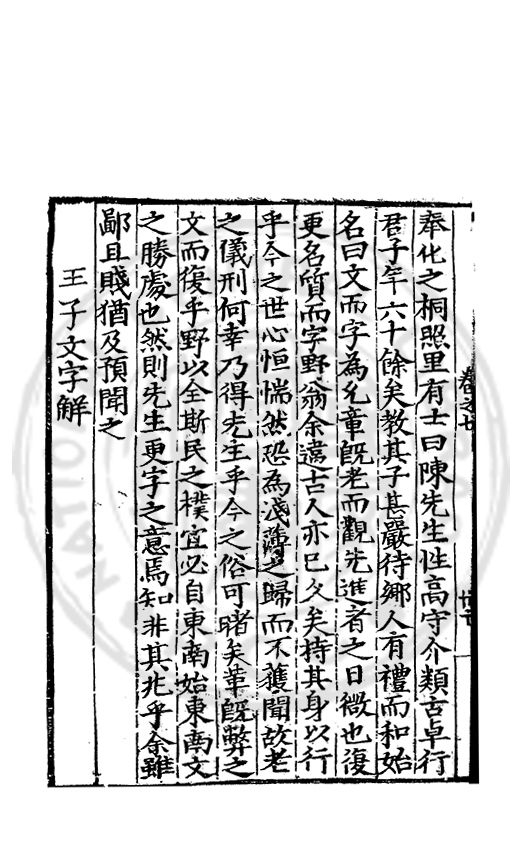 奉化之桐照里有士曰陳先生性高守介類古卓行
君子年六十餘矣教其子甚嚴待鄉人有禮而和始
名曰文而字為允章既老而觀先進者之日微也復
更名質而字野翁余違古人亦已久矣持其身以行
乎今之世心恒惴然恐為淺薄之歸而不獲聞故老
之儀刑何幸乃得先生乎今之俗可睹矣革既弊之
文而復乎野以全斯民之樸宜必自東南始東南文
之勝處也然則先生更字之意焉知非其兆乎余雖
鄙且賤猶及預聞之
王子文字解
卷之七